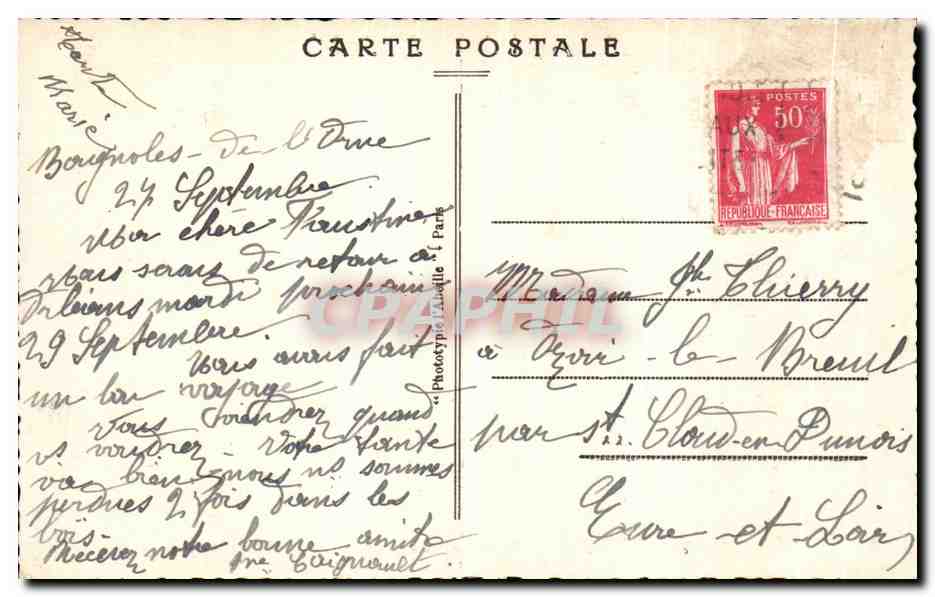 CARTE POSTALE
Tante
Marie
Bagnoles-de l'Orne
27 Septembre
Ma chère Faustine
Nais serais de retour à
Orléans mardi prochain
29 Septembre
Nais avais fait
un bon voyage
Vous viendrez quand
vs voudrez. Votre tante
va bien. nous ns sommes
perdues 2 fois dans les
bois.
Recevez notre bonne amitié
Caignault
"Phototypie l'Abeille" Paris
POSTES
50c
AUX
RÉPUBLIQUE-FRANÇAISE
Madame Ph Thierry
à Ozoir-le-Breuil
par St. Cloud-en-Dunois
Eure et Loir
CPAPHIL